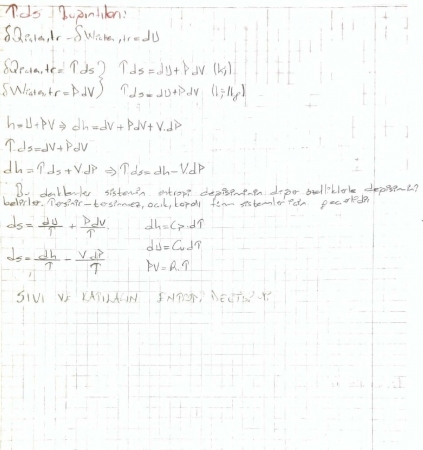 Tds Bağıntıları:
δQiç.ta,tr - δWiç.ta,tr = dU
δQiç.ta,tr = Tds } Tds = dU + PdV (kJ)
δWiç.ta,tr = PdV } Tds = dU + PdV (kJ/kg)
h = U + PV ⇒ dh = dV + PdV + VdP
Tds = dV + PdV
dh = Tds + VdP ⇒ Tds = dh - VdP
Bu denklemler sistemin entropi değişiminin diğer özelliklerle değişimini
belirler. Tersinir-tersinmez, açık, kapalı tüm sistemler için geçerlidir
ds = dU/T + PdV/T dh = Cp.dT
dU = Cv dT
ds = dh/T - VdP/T PV = R.T
SIVI VE KATILARIN ENTROPİ